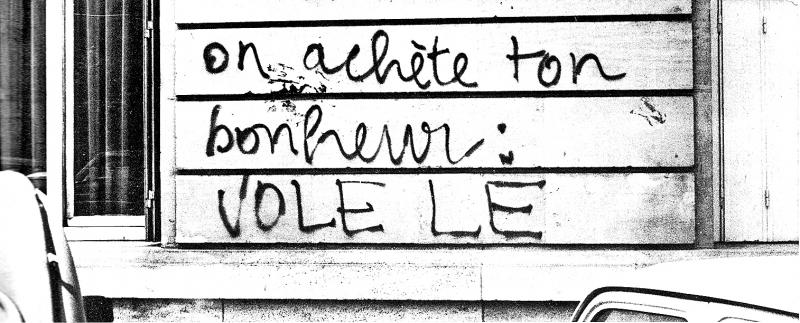 on achète ton
bonheur :
VOLE LE